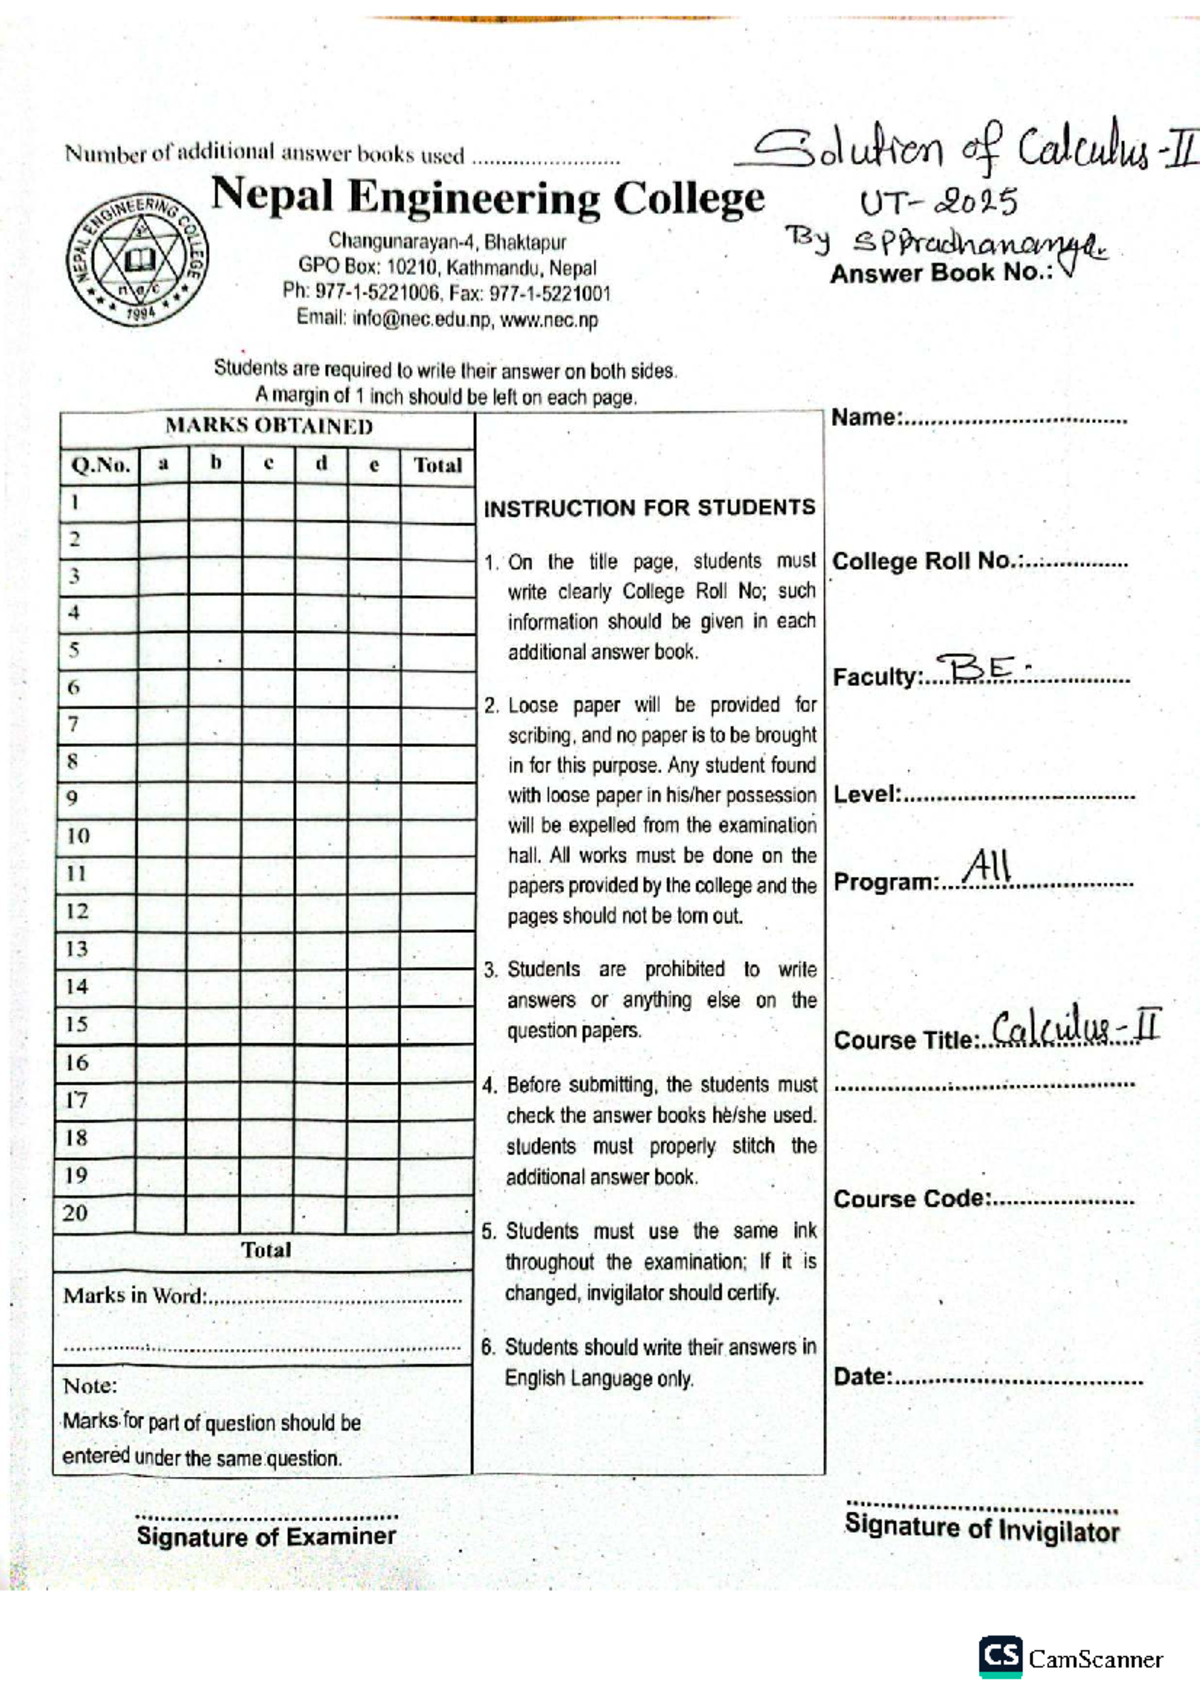 Number of additional answer books used ..........................
Solution of Calculus-II
UT-2025
By SPPradhananga.
Nepal Engineering College
Changunarayan-4, Bhaktapur
GPO Box: 10210, Kathmandu, Nepal
Ph: 977-1-5221006, Fax: 977-1-5221001
Email: info@nec.edu.np, www.nec.np
NEPAL ENGINEERING COLLEGE
nec
1994
Answer Book No.:
Students are required to write their answer on both sides.
A margin of 1 inch should be left on each page.
MARKS OBTAINED
Q.No. a b c d e Total
1
2
3
4
5
6
7
8
9
10
11
12
13
14
15
16
17
18
19
20
Total
Marks in Word:..........................................
..........................................................
Note:
Marks for part of question should be
entered under the same question.
INSTRUCTION FOR STUDENTS
1. On the title page, students must
write clearly College Roll No; such
information should be given in each
additional answer book.
2. Loose paper will be provided for
scribing, and no paper is to be brought
in for this purpose. Any student found
with loose paper in his/her possession
will be expelled from the examination
hall. All works must be done on the
papers provided by the college and the
pages should not be torn out.
3. Students are prohibited to write
answers or anything else on the
question papers.
4. Before submitting, the students must
check the answer books he/she used.
students must properly stitch the
additional answer book.
5. Students must use the same ink
throughout the examination; If it is
changed, invigilator should certify.
6. Students should write their answers in
English Language only.
Name:..................................
College Roll No.:..................
Faculty:....BE..................
Level:..................................
Program:...All..................
Course Title:..Calculus-II
............................................
Course Code:.....................
Date:.....................................
Signature of Examiner
Signature of Invigilator
CS CamScanner